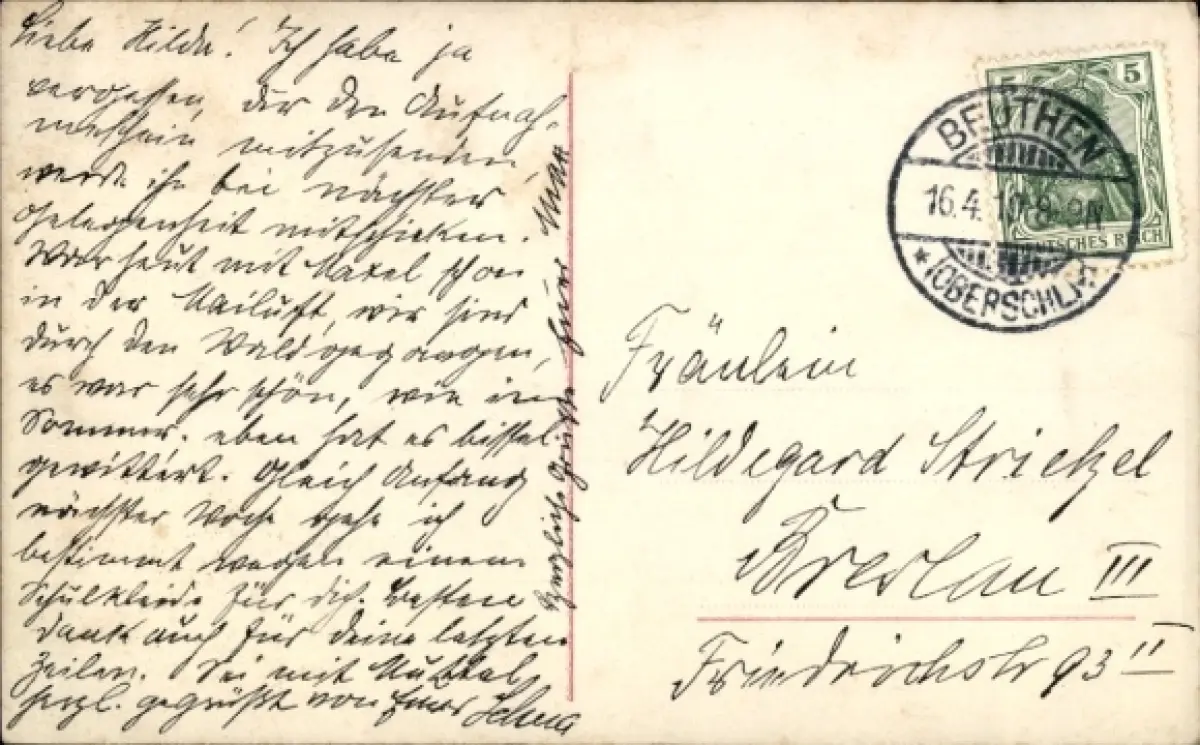 Liebe Hilde! Ich habe ja
vergessen, dir den Aufnah-
meschein mitzusenden,
werde ihn bei nächster
Gelegenheit mitschicken.
War heut mit Maxel schon
in der Mailuft, wir sind
durch den Wald gegangen,
es war sehr schön, wie im
Sommer. eben hat es bissel
gewittert. Gleich Anfang
nächster Woche gehe ich
bestimmt wegen einem
Schulkleide für dich. Besten
Dank auch für deine letzten
Zeilen. Sei mit Muttel
herzl. gegrüßt von
Herzliche Grüße
5 5
DEUTSCHES REICH
BEUTHEN
16.4.10. 8-9N
* (OBERSCHL.)
Fräulein
Hildegard Strietzel
Breslau III
Friedrichstr 93 II